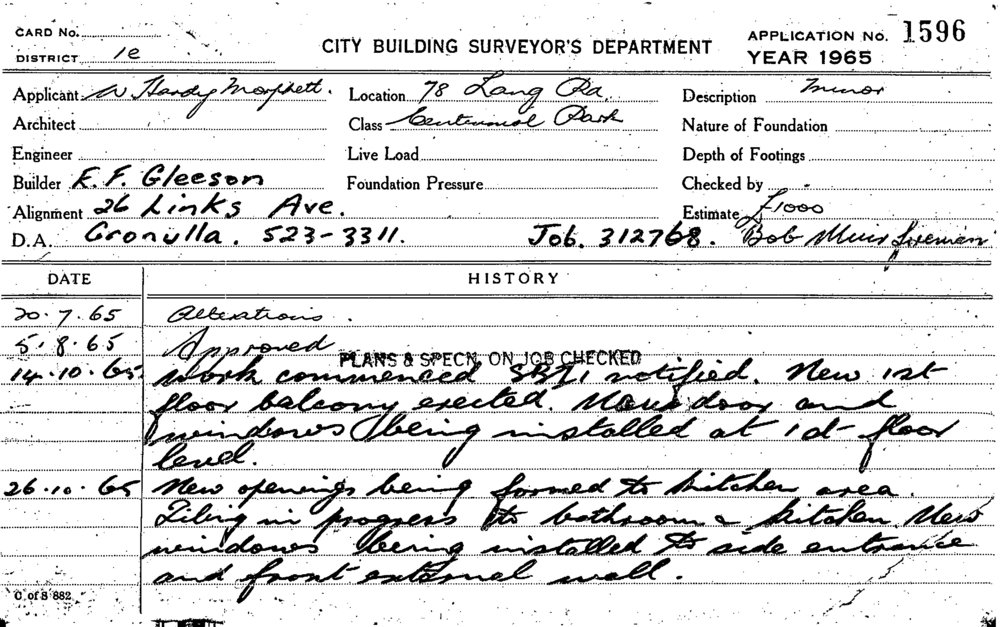 CARD No.
DISTRICT 1e
CITY BUILDING SURVEYOR'S DEPARTMENT
APPLICATION No. 1596
YEAR 1965
Applicant W Hardy Morphett. Location 78 Lang Rd, Description Minor
Architect Class Centennial Park Nature of Foundation
Engineer Live Load Depth of Footings
Builder E. F. Gleeson Foundation Pressure Checked by
Alignment 26 Links Ave. Estimate £1000
D.A. Cronulla. 523-3311. Job. 312768. Bob Muir foreman
DATE HISTORY
20.7.65 Alterations.
5.8.65 Approved
PLANS & SPECN. ON JOB CHECKED
14.10.65 Work commenced notified. New 1st
floor balcony erected. New door and
windows being installed at floor
level.
26.10.65 New openings being formed to kitchen area.
Tiling in progress to bathroom & kitchen New
windows being installed to side entrance
and front external wall.
C. of S 882